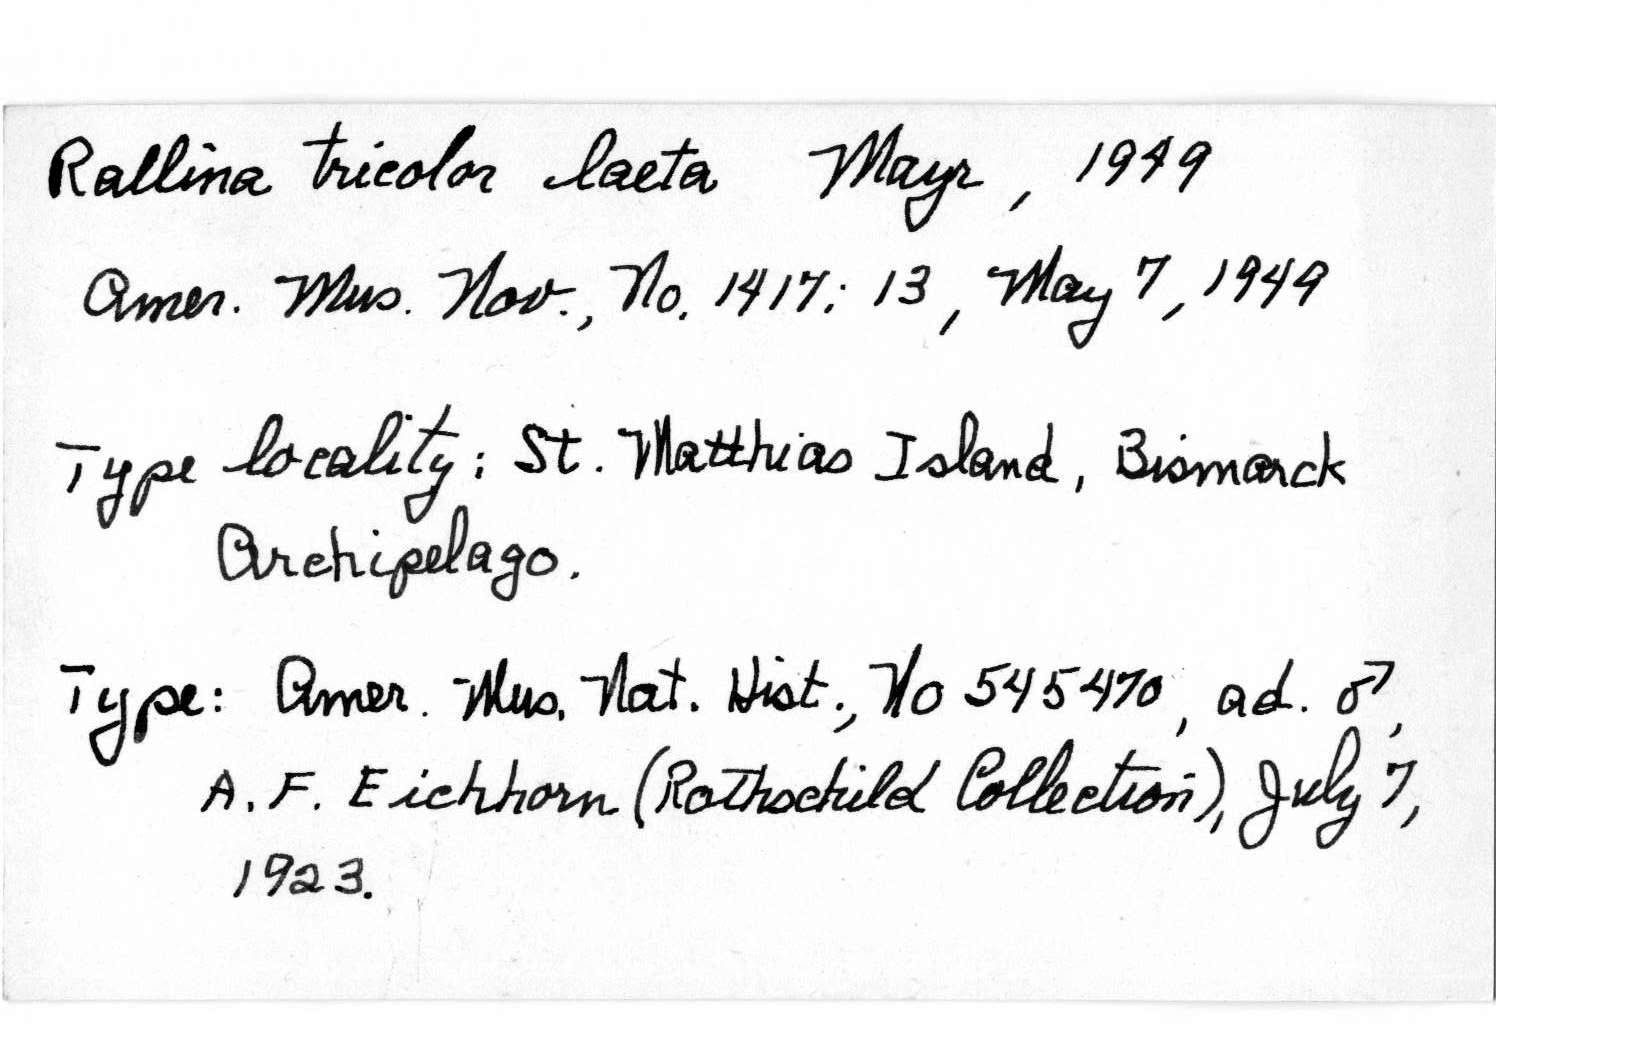 Rallina tricolor laeta Mayr, 1949
Amer. Mus. Nov., No. 1417: 13, May 7, 1949
Type locality: St. Matthias Island, Bismarck
Archipelago.
Type: Amer. Mus. Nat. Hist., No 545470, ad. ♂,
A. F. Eichhorn (Rothschild Collection), July 7,
1923.